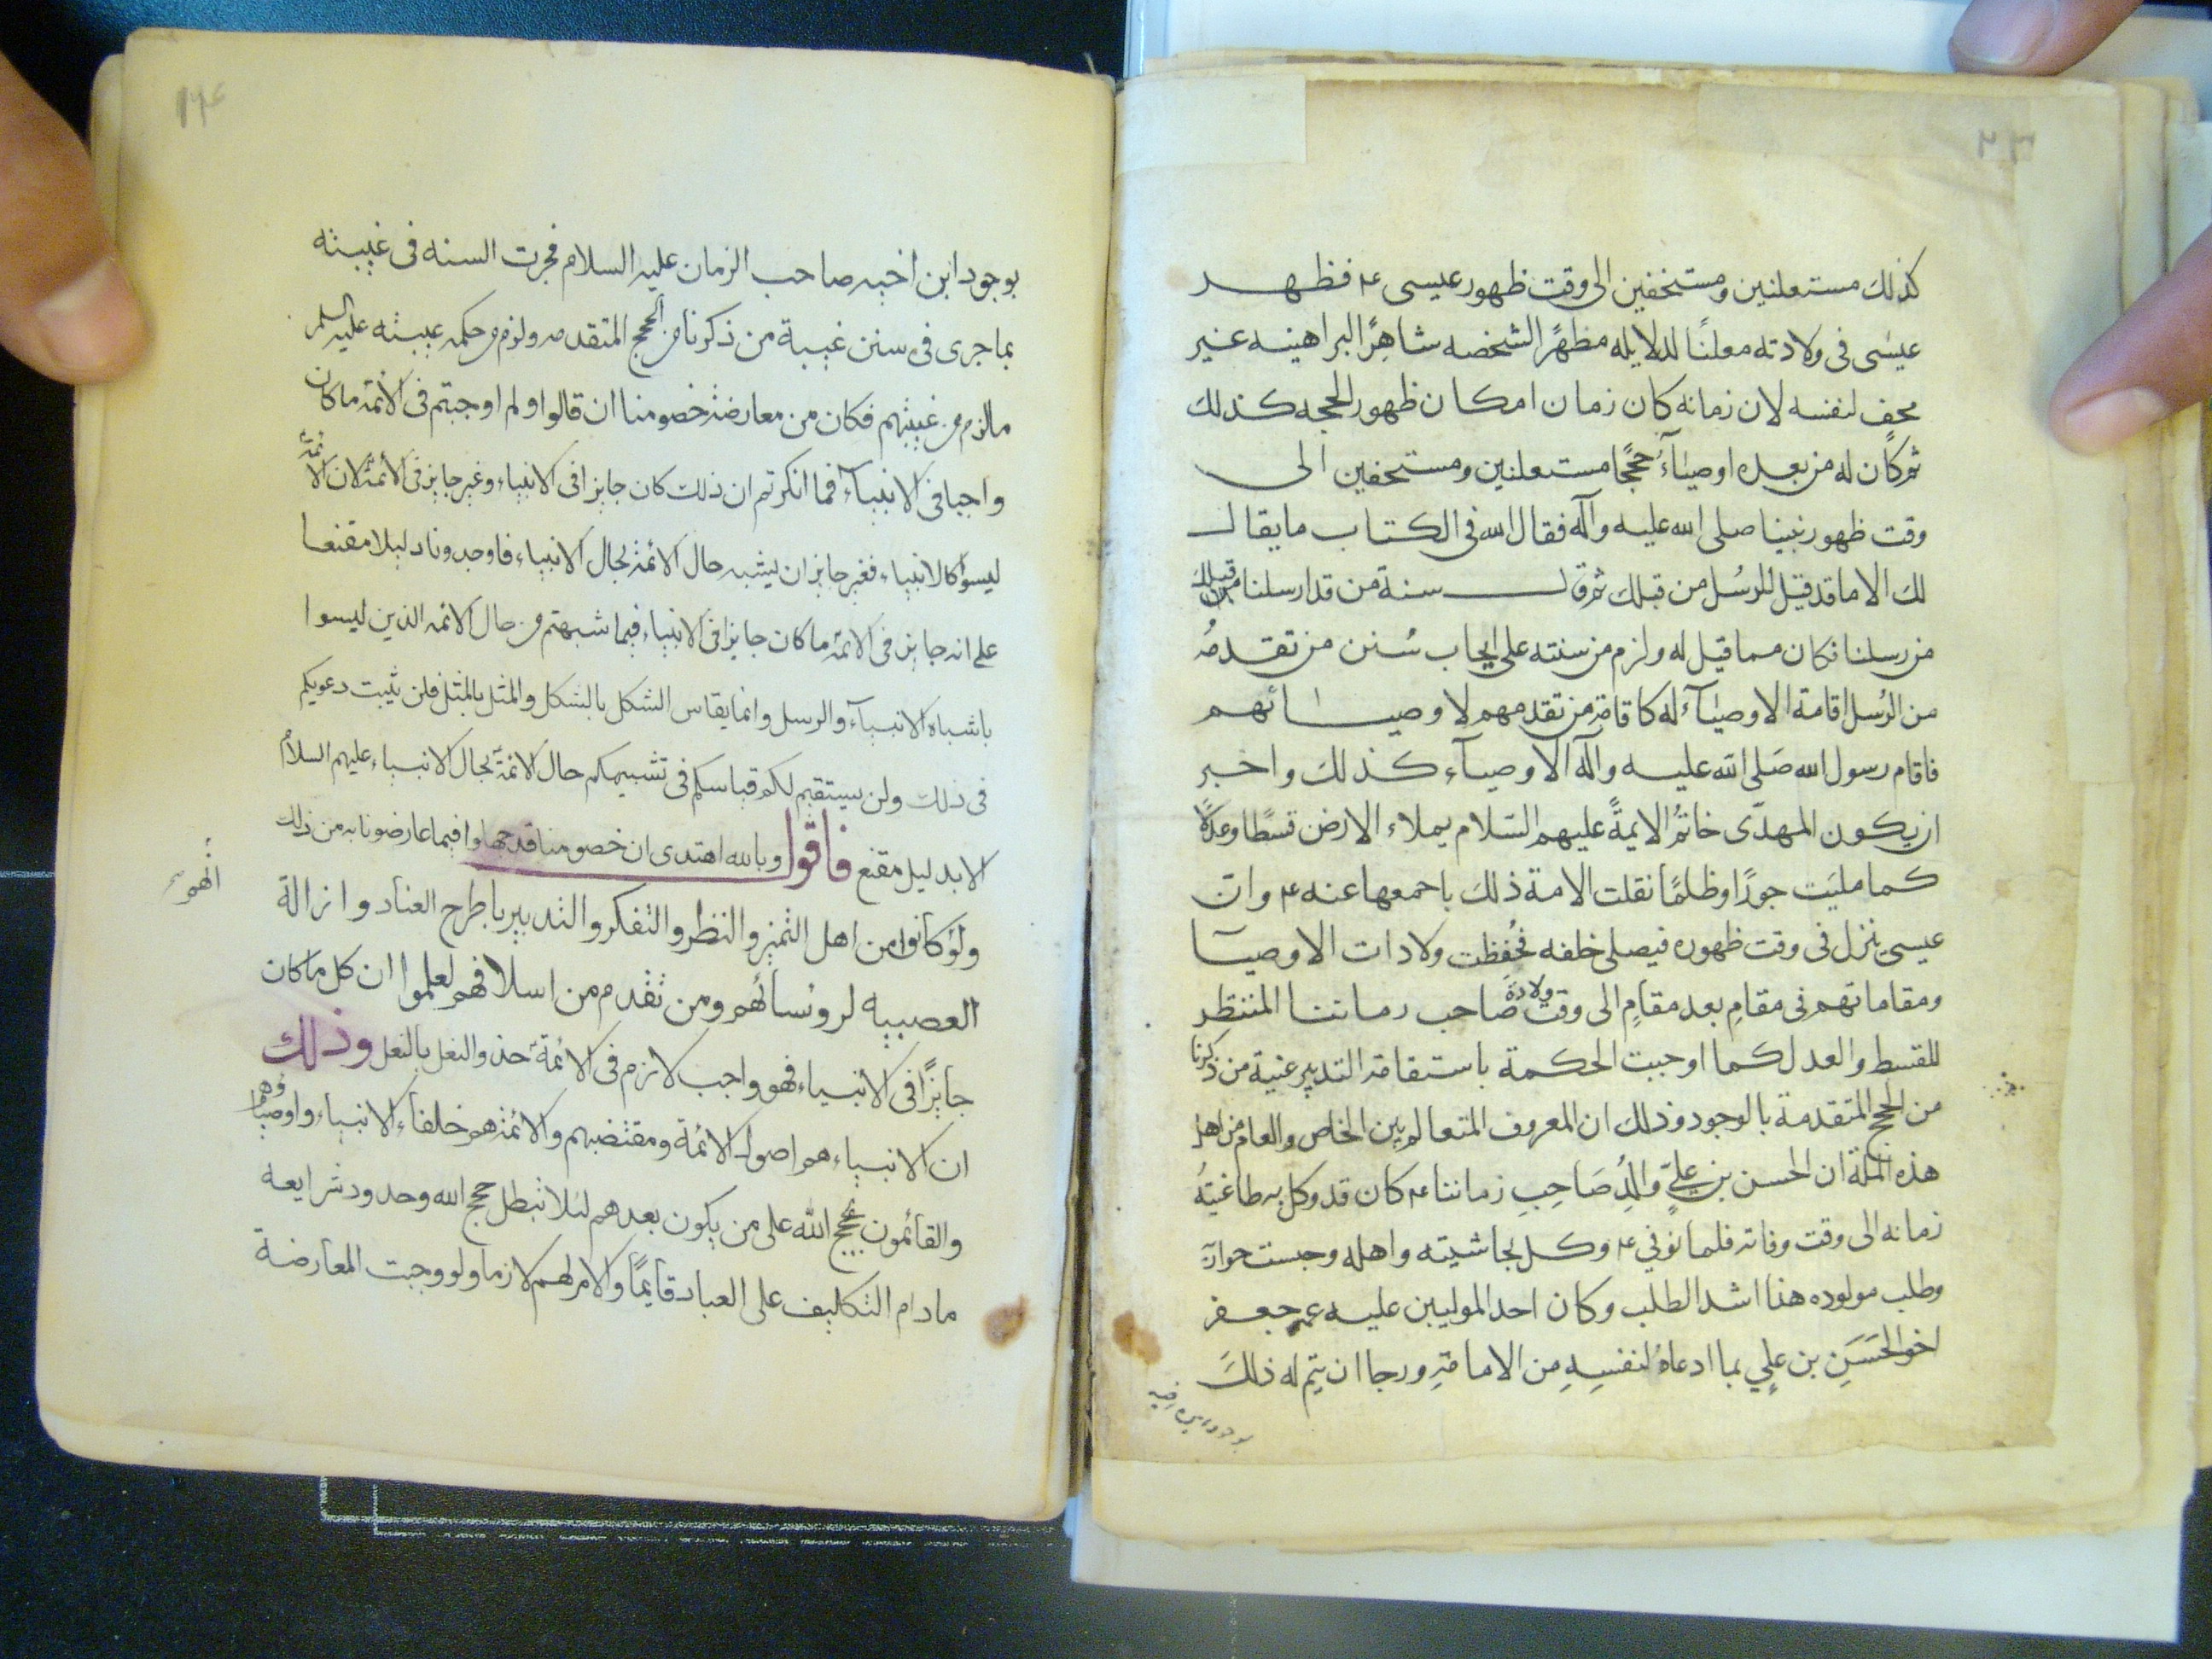 ٢٣
كذلك مستعلنين ومستخفين الى وقت ظهور عيسى ع فظهر
عيسى فى ولادته معلنًا لدلايله مظهرًا لشخصه شاهرًا لبراهينه غير
مخف لنفسه لان زمانه كان زمان امكان ظهور الحجه كذلك
ثم كان له من بعده اوصياءُ حججًا مستعلنين ومستخفين الى
وقت ظهور نبينا صلى الله عليه وآله فقال الله فى الكتاب ما يقال
لك الا ما قد قيل للرسُل من قبلك ثم قال سنة من قد ارسلنا قبلك
من رسلنا فكان مما قيل له ولزم من سنته على ايجاب سُنن من تقدمهُ
من الرُسل اقامة الاوصيآء له كاقامة من تقدمهم لاوصيائهم
فاقام رسول الله صَلى الله عليه وآله الاوصيآء كذلك واخبر
ان يكون المهدّى خاتمُ الايمةً عليهم السّلام يملاء الارض قسطًا وعدلًا
كما مليَت جورًا وظلمًا نقلت الامة ذلك باجمعها عنه ع وانّ
عيسى ينزل فى وقت ظهوره فيصلى خلفه فحُفظت ولادات الاوصيآ
ومقاماتهم فى مقامٍ بعد مقامٍ الى وقت ولادة صاحب رماننا المنتظر
للقسط والعدل كما اوجبت الحكمة باستقامة التدبير غيبة من ذكرنا
من الحجج المتقدمة بالوجود وذلك ان المعروف المتعالم بين الخاص والعام من اهل
هذه الملة ان الحسن بن عليّ والِدُ صَاحِبِ زماننا ع كان قد وكل به طاغيةُ
زمانه الى وقت وفاته فلما توُفي ع وكل بحاشيته واهله وحبست جواريه
وطلب مولوده هذا اشد الطلب وكان احد الموليين عليه عمه جعفر
اخو الحَسَنِ بن علي بما ادعاهُ لنفسِهِ من الامامةِ ورجا ان يتم له ذلكَ
بوجود ابن اخيه
١٦٤
بوجود ابن اخيه صاحب الزمان عليه السلام فجرت السنه فى غيبته
بما جرى فى سنن غيبة من ذكرنا من الحجج المتقدمه ولزم من حكمه غيبته عليه السلم
ما لزم من غيبتهم فكان من معارضة خصومنا ان قالوا ولم اوجبتم فى الائمة ما كان
واجبا فى الانبيآء فما انكرتم ان ذلك كان جايزا فى الانبياء وغير جايز فى الأئمة لان الائمة
ليسوُا كالانبياء فغير جايز ان يشبه حال الائمة بحال الانبياء فاوجدونا دليلا مقنعا
على انه جايز فى الائمة ما كان جايزا فى الانبياء فيما شبهتم من حال الائمه الذين ليسوا
باشباه الانبيآء والرسل وانما يقاس الشكل بالشكل والمثل بالمثل فلن يثبت دعويكم
فى ذلك ولن يستقيم لكم قياسكم فى تشبيهكم حال الائمة بحال الانبياء عليهم السلام
الا بدليل مقنع فاقول وبالله اهتدى ان خصومنا قد جهلوا فيما عارضونا به من ذلك
ولو كانوا من اهل التميز والنظر والتفكر والتدبير باطرح العناد وازالة
انهم
العصبيه لروٴسائهم ومن تقدم من اسلافهم لعلموا ان كل ما كان
جايزًا فى الانبياء فهو واجب لازم فى الائمة حذو النعل بالنعل وذلك
ان الانبياء هم اصول الائمة ومقتضيهم والائمة هم خلفاء الانبياء واوصياوُهم
والقائمون بحجج الله على من يكون بعدهم لئلا تبطل حجج الله وحدود شرايعه
مادام التكليف على العباد قايمًا والامر لهم لازما ولو وجبت المعارضة